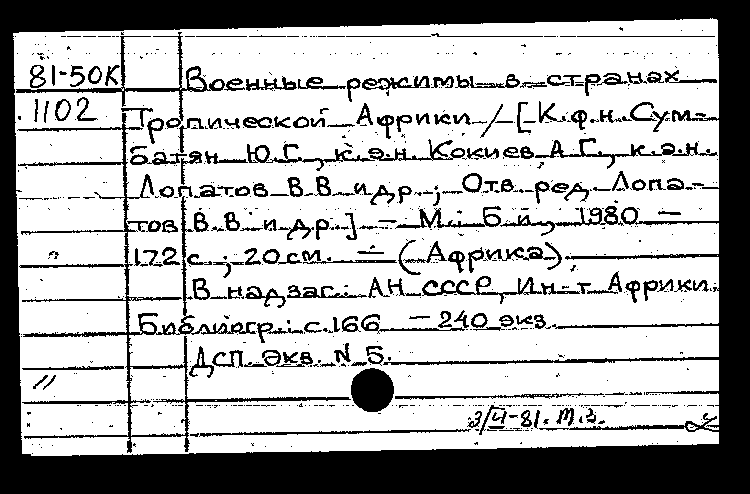 81-50К Военные режимы в странах
1102 Тропической Африки / [К.ф.н. Сум-
батян Ю.Г., к.э.н. Кокиев А.Г., к.э.н.
Лопатов В.В. и др.; Отв. ред. Лопа-
тов В.В. и др.] – М.: Б.и., 1980 –
172 с.; 20 см. – (Африка).
В надзаг.: АН СССР, Ин-т Африки.
Библиогр.: с. 166 – 240 экз.
ДСП. Экз. N 5.
3/IV-81. т.з.